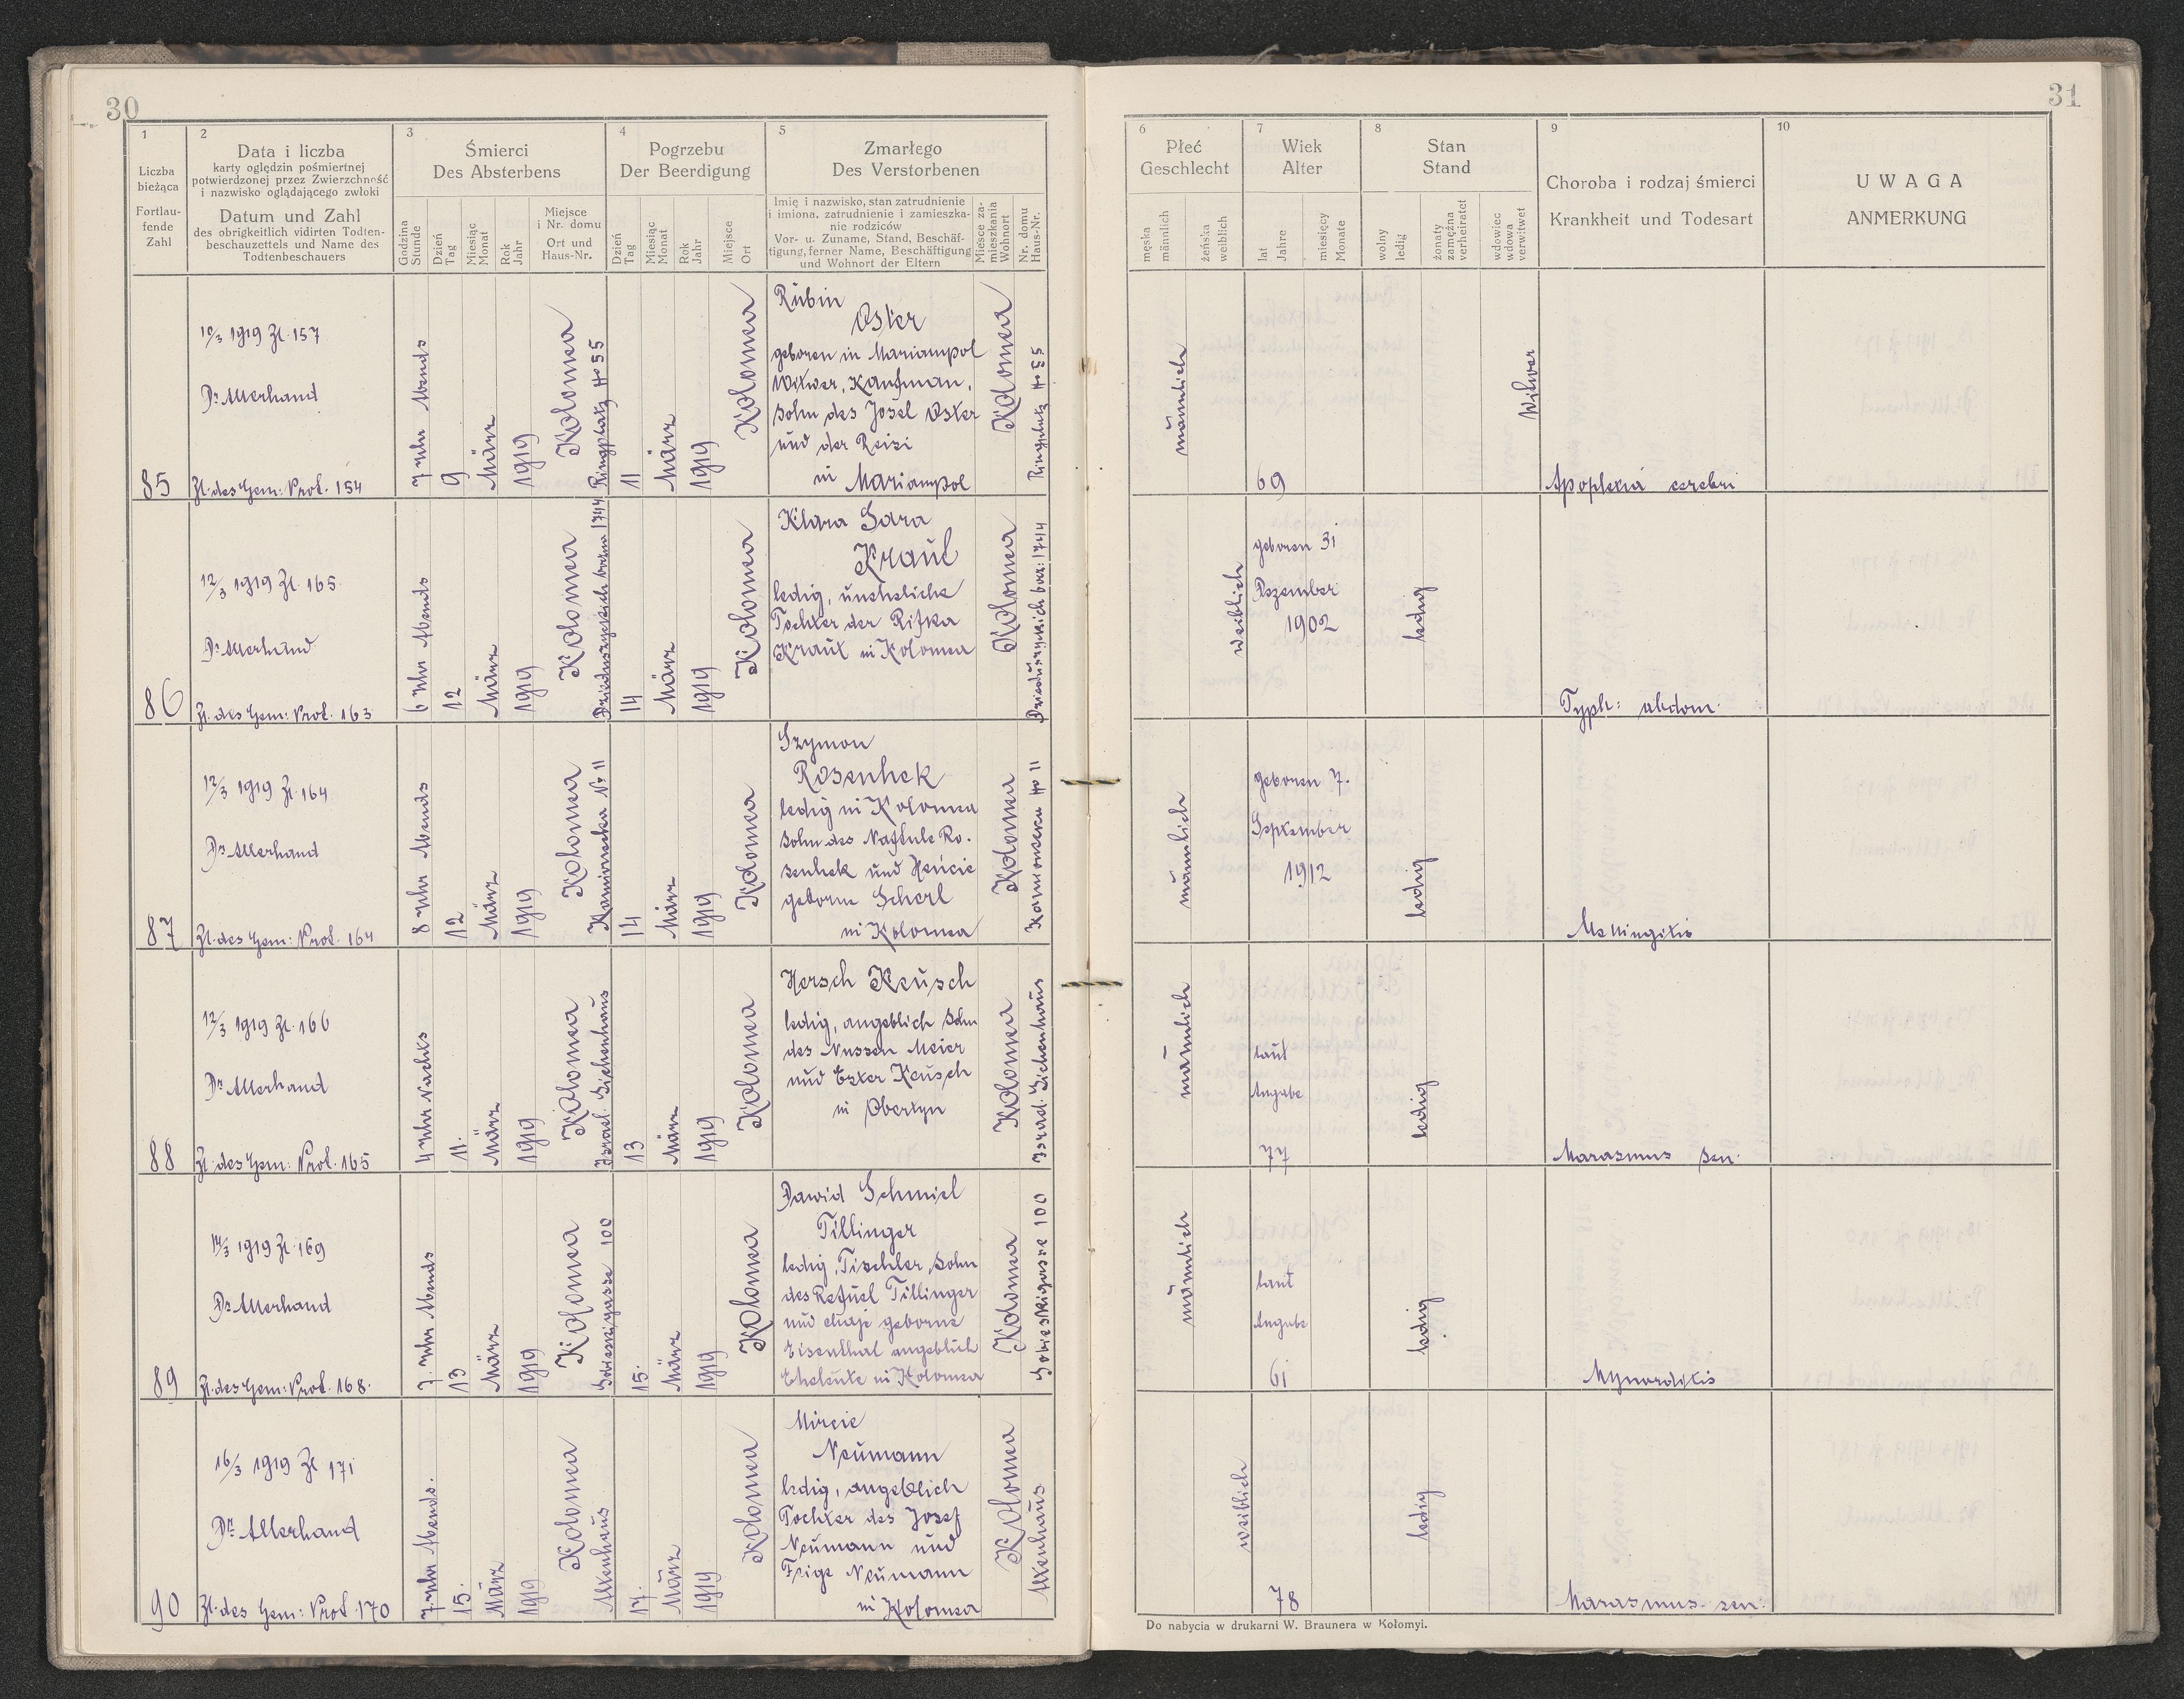 30
1
Liczba
bieżąca
Fortlau-
fende
Zahl
2
Data i liczba
karty oględzin pośmiertnej
potwierdzonej przez Zwierzchność
i nazwisko oglądającego zwłoki
Datum und Zahl
des obrigkeitlich vidirten Todten-
beschauzettels und Name des
Todtenbeschauers
3
Śmierci
Des Absterbens
Godzina
Stunde
Dzień
Tag
Miesiąc
Monat
Rok
Jahr
Miejsce
i Nr. domu
Ort und
Haus-Nr.
4
Pogrzebu
Der Beerdigung
Dzień
Tag
Miesiąc
Monat
Rok
Jahr
Miejsce
Ort
5
Zmarłego
Des Verstorbenen
Imię i nazwisko, stan zatrudnienie
i imiona, zatrudnienie i zamieszka-
nie rodziców
Vor- u. Zuname, Stand, Beschäf-
tigung, ferner Name, Beschäftigung
und Wohnort der Eltern
Miesce za-
mieszkania
Wohnort
Nr. domu
Haus-Nr.
85
10/3 1919 Zl. 157
Dr Allerhand
Zl. des Gem: Prot. 154
7 Uhr Abends
9
März
1919
Kolomea
Ringplatz No 55
11
März
1919
Kolomea
Rubin
Oster
geboren in Mariampol
Witwer, Kaufman,
Sohn des Josel Oster
und der Reisi
in Mariampol
Kolomea
Ringplatz No 55
86
12/3 1919 Zl. 165
Dr Allerhand
Zl. des Gem: Prot. 163
6 Uhr Abends
12
März
1919
Kolomea
14
März
1919
Kolomea
Klara Sara
Kraut
ledig, uneheliche
Tochter der Rifka
Kraut in Kolomea
Kolomea
87
12/3 1919 Zl. 164
Dr Allerhand
Zl. des Gem: Prot. 164
8 Uhr Abends
12
März
1919
Kolomea
14
März
1919
Kolomea
Szymon
Rosenhek
ledig in Kolomea
Sohn des Naftule Ro-
senhek und Hencie
geborne Scherl
in Kolomea
Kolomea
88
12/3 1919 Zl. 166
Dr Allerhand
Zl. des Gem: Prot. 165
4 Uhr Nachts
11.
März
1919
Kolomea
Israel. Siechenhaus
13
März
1919
Kolomea
Hersch Keusch
ledig, angeblich Sohn
des Nussen Meier
und Ester Keusch
in Obertyn
Kolomea
Israel. Siechenhaus
89
14/3 1919 Zl. 169
Dr Allerhand
Zl. des Gem: Prot. 168.
7. Uhr Abends
13
März
1919
Kolomea
Sobieskigasse 100
15.
März
1919
Kolomea
Dawid Schmiel
Tillinger
ledig, Tischler, Sohn
des Refuel Tillinger
und Chaje geborne
Eisenthal angeblich
Eheleute in Kolomea
Kolomea
Sobieskigasse 100
90
16/3 1919 Zl 171
Dr Allerhand
Zl. des Gem: Prot. 170
7. Uhr Abends.
15.
März
1919
Kolomea
Altenhaus
17.
März
1919
Kolomea
Mircie
Neumann
ledig, angeblich
Tochter des Josef
Neumann und
Feige Neumann
in Kolomea
Kolomea
Altenhaus
31
6
Płeć
Geschlecht
męska
männlich
żeńska
weiblich
7
Wiek
Alter
lat
Jahre
miesięcy
Monate
8
Stan
Stand
wolny
ledig
żonaty
zamężna
verheiratet
wdowiec
wdowa
verwitwet
9
Choroba i rodzaj śmierci
Krankheit und Todesart
10
UWAGA
ANMERKUNG
männlich
69
Witwer
Apoplexia cerebri
weiblich
geboren 31
Dezember
1902
ledig
Typh: abdom.
männlich
geboren 7.
September
1912
ledig
Meningitis
männlich
laut
Angabe
77
ledig
Marasmus sen.
männlich
laut
Angabe
61
ledig
weiblich
78
ledig
Marasmus sen.
Do nabycia w drukarni W. Braunera w Kołomyi.